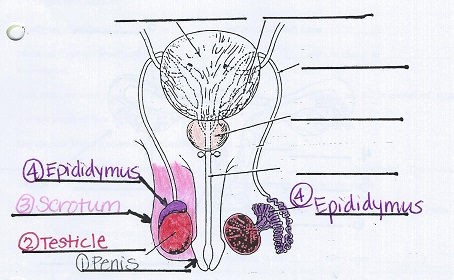 ④ Epididymus
③ Scrotum
② Testicle
① Penis
④ Epididymus